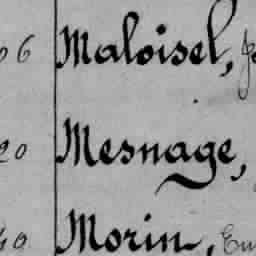 06 Maloisel,
20 Mesnage,
40 Morin,